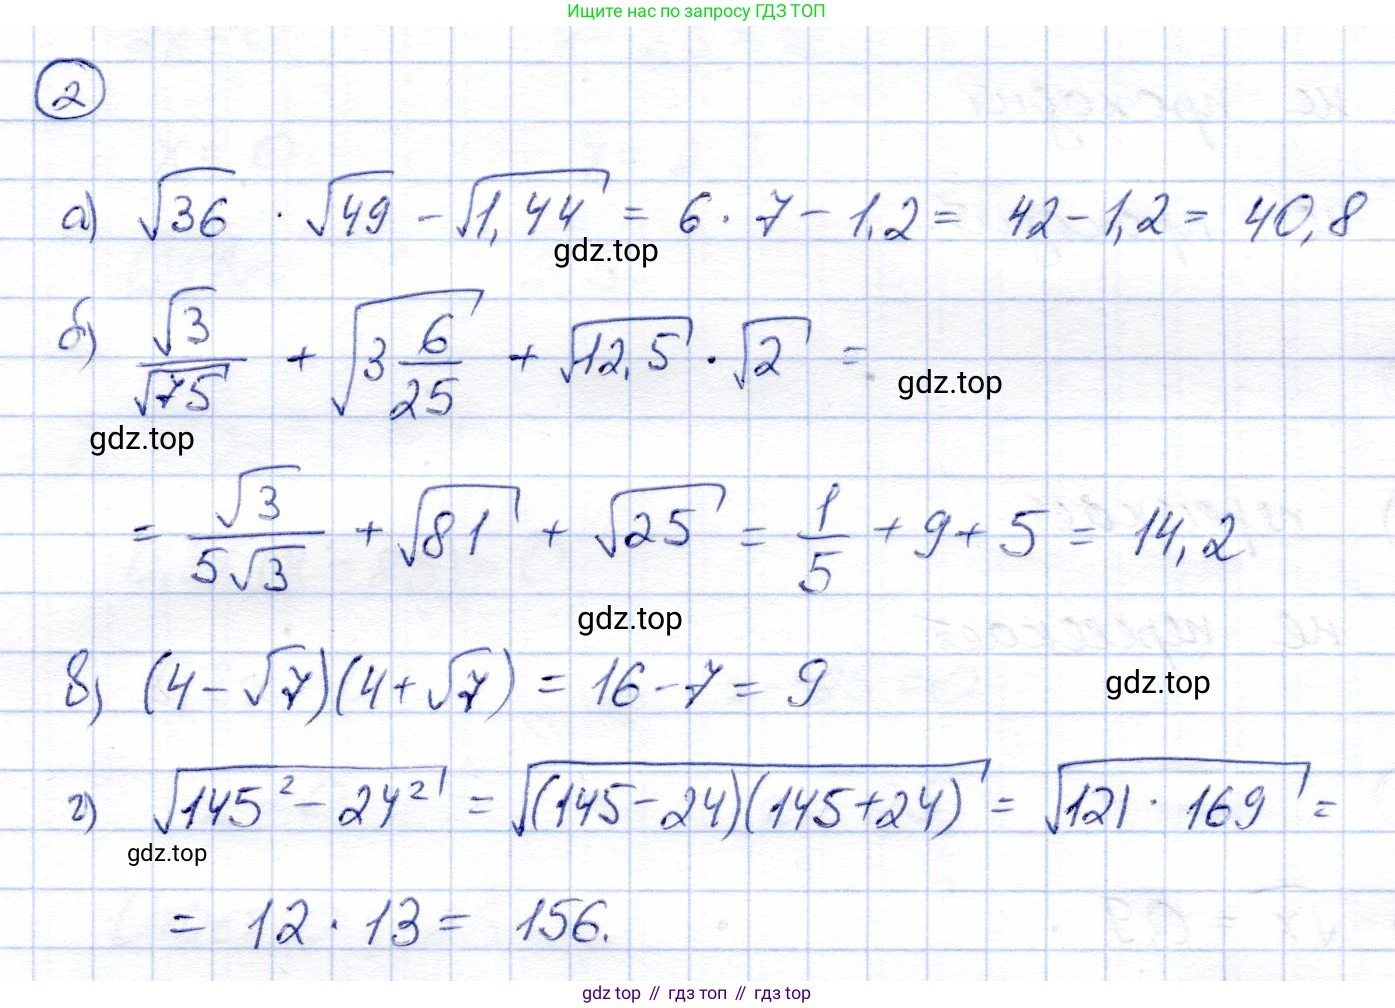 Ищите нас по запросу ГДЗ ТОП
2
а) √36 · √49 - √1,44 = 6 · 7 - 1,2 = 42 - 1,2 = 40,8
gdz.top
б) √3/√75 + √(3 6/25) + √12,5 · √2 =
gdz.top
gdz.top
= √3/(5√3) + √81 + √25 = 1/5 + 9 + 5 = 14,2
gdz.top
в) (4 - √7)(4 + √7) = 16 - 7 = 9
gdz.top
г) √(145² - 24²) = √((145 - 24)(145 + 24)) = √(121 · 169) =
gdz.top
= 12 · 13 = 156.
gdz top // гдз топ // гдз top